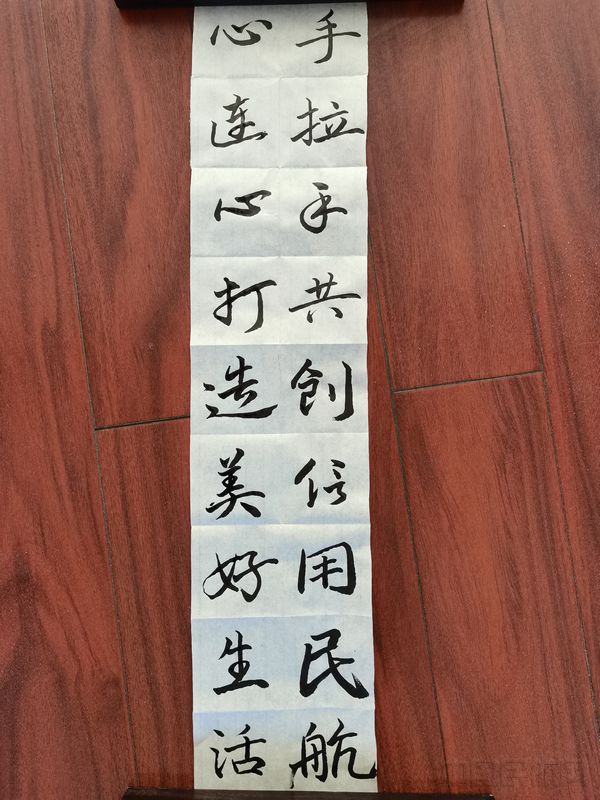 手拉手共创信用民航
心连心打造美好生活